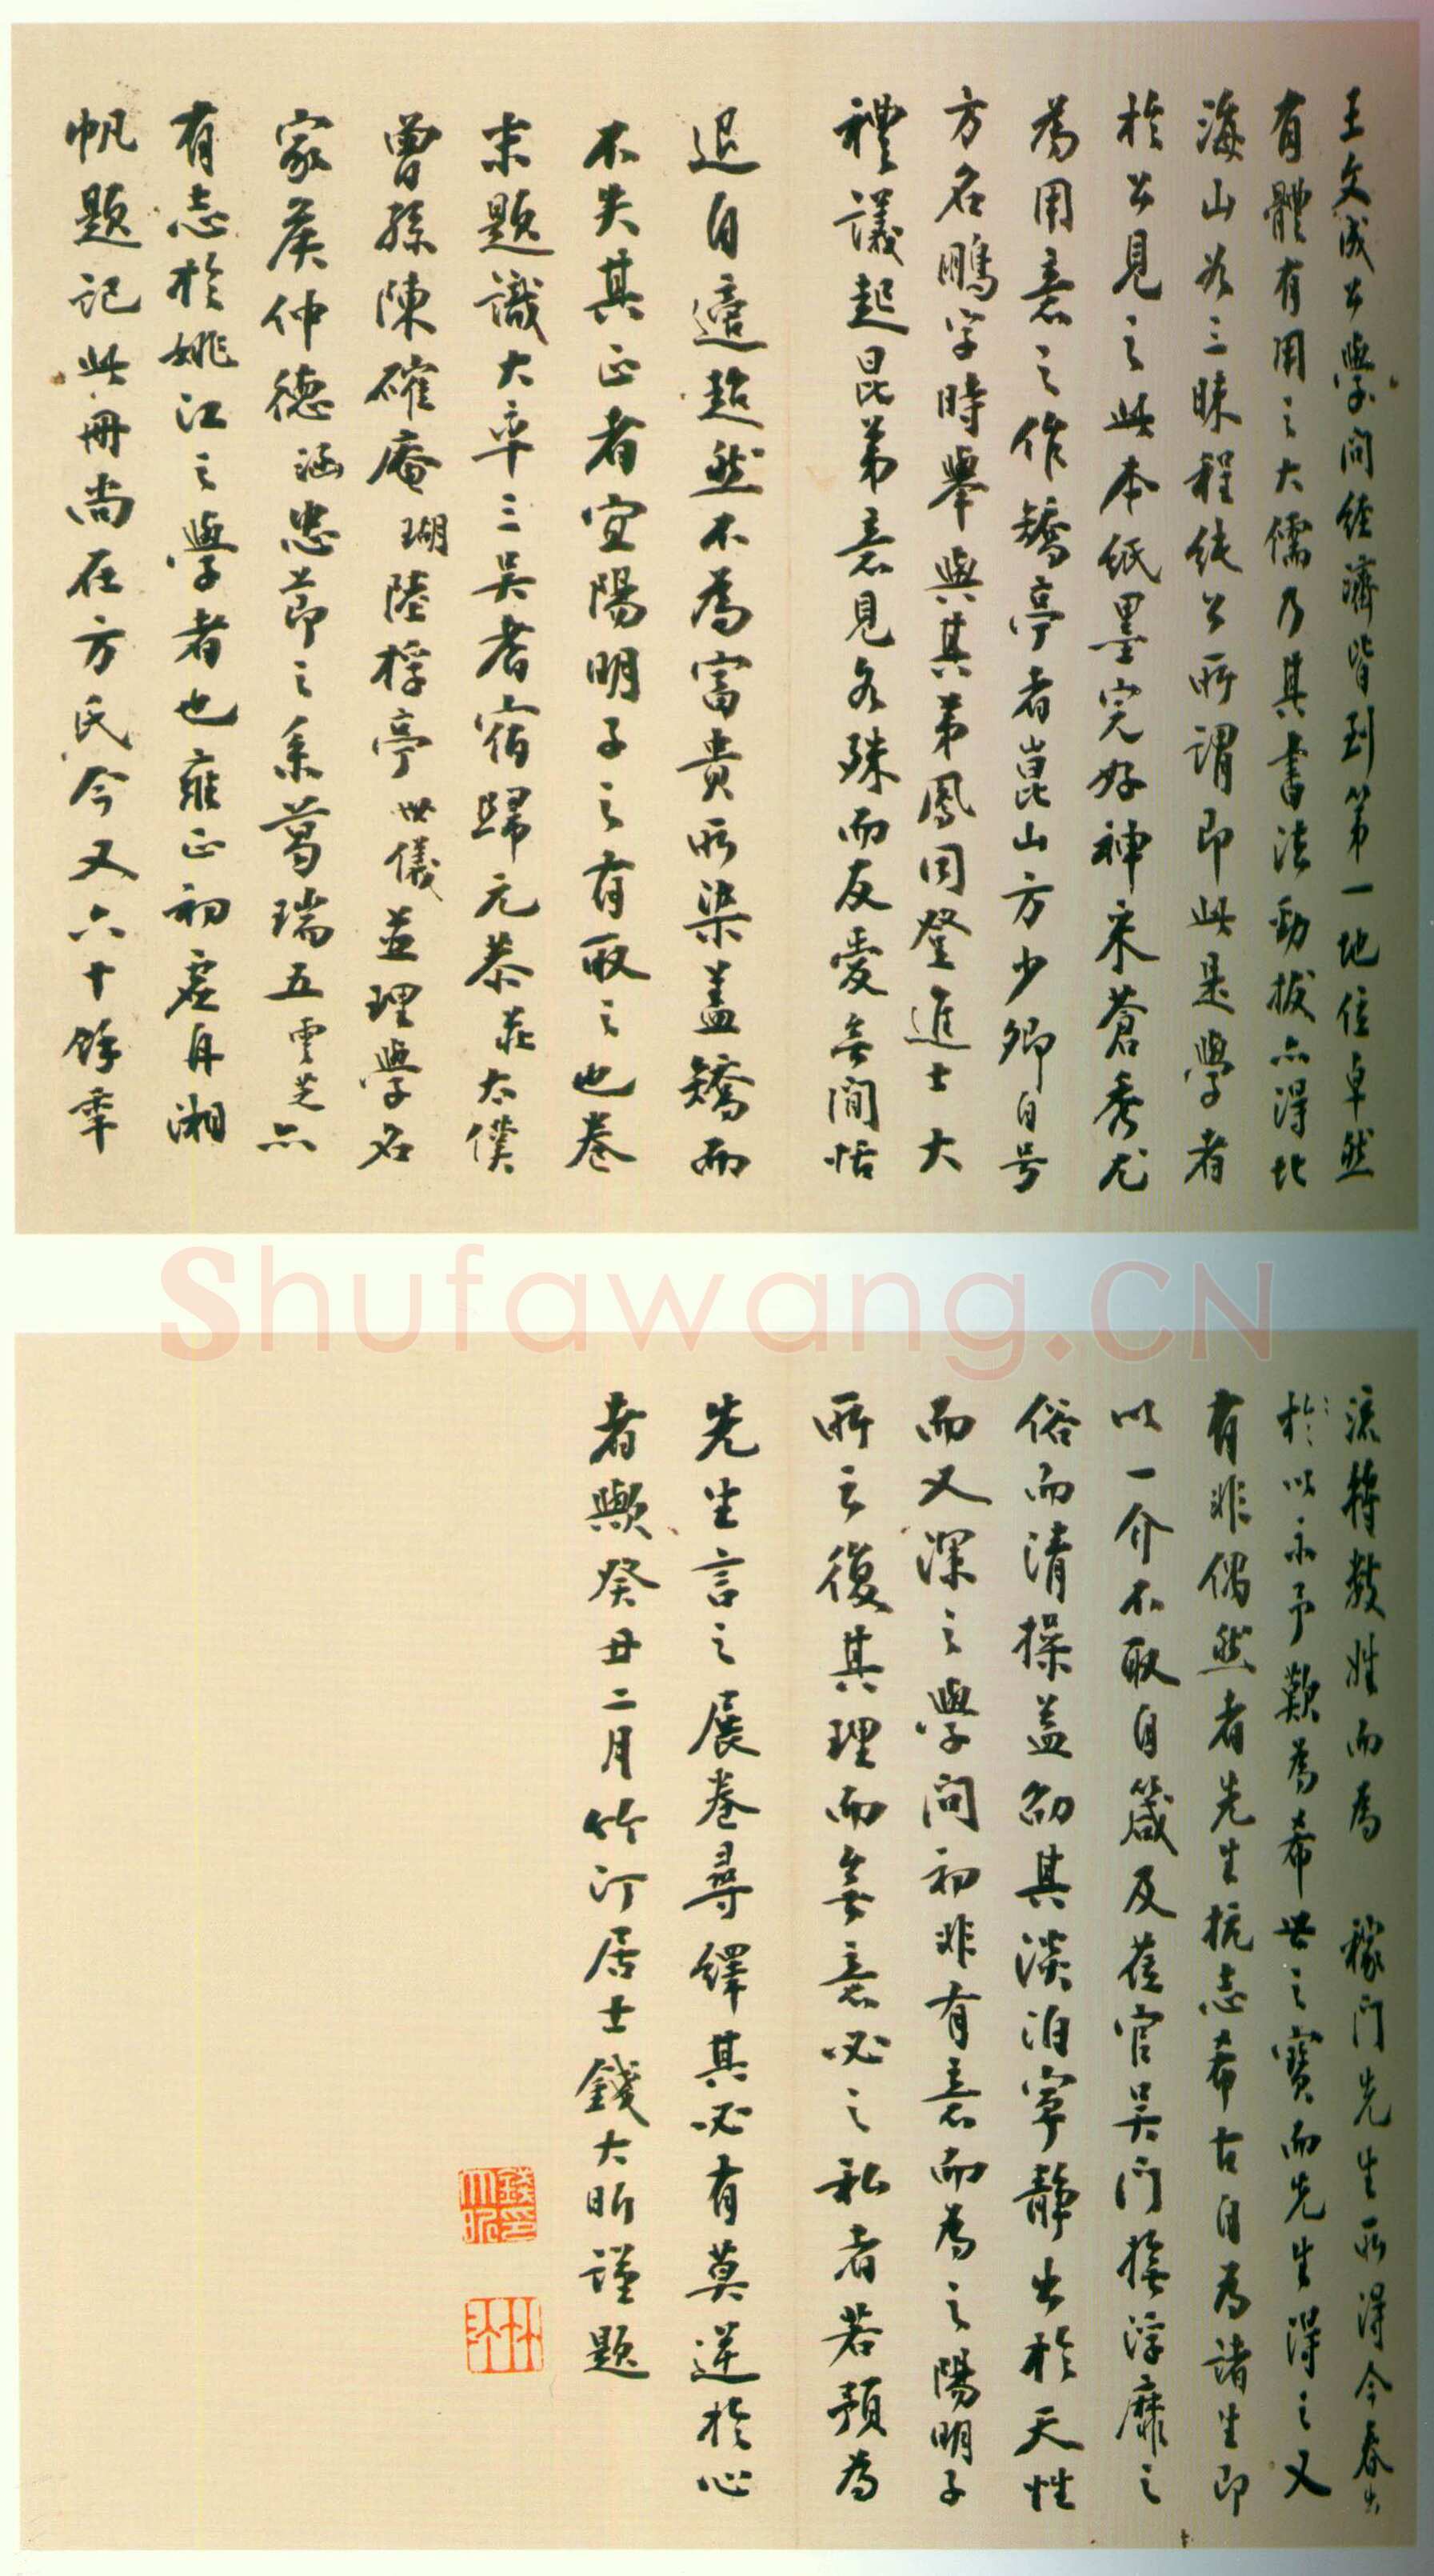 王文成公學問經濟皆到第一地位卓然
有體有用之大儒乃其書法勁拔亦得北
海山谷三昧程純公所謂即此是學者
於公見之此本紙墨完好神采蒼秀尤
為用意之作矯亭者崑山方少卿自号
方名鵬字時舉與其弟鳳同登進士大
禮議起昆弟意見各殊而友愛無間恬
退自適超然不為富貴所染蓋矯而
不失其正者宜陽明子之有取之也卷
末題識大率三吳耆宿歸元恭莊太僕
曾孫陳確庵瑚陸桴亭世儀並理學名
家侯仲德涵忠節之系葛瑞五雲芝亦
有志於姚江之學者也雍正初虛舟湘
帆題記此冊尚在方氏今又六十餘年
流轉數姓而為 稼門先生所得今春出
於以示予歎為希世之寶而先生得之又
有非偶然者先生抗志希古自為諸生即
以一介不取自箴及莅官吳門挽浮靡之
俗而清操益勵其淡泊寧靜出於天性
而又深之學問初非有意而為之陽明子
所云復其理而無意必之私者若預為
先生言之展卷尋繹其必有莫逆於心
者歟癸丑二月竹汀居士錢大昕謹題
錢大昕印
竹汀
Shufawang.CN